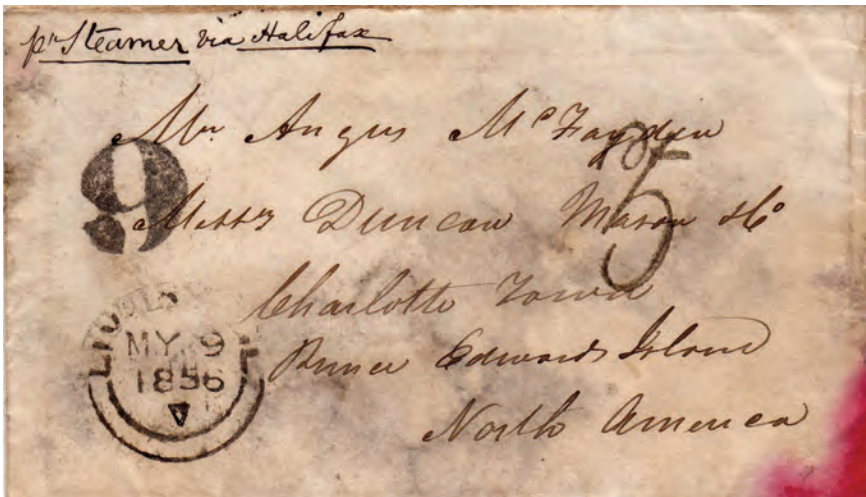 pr Steamer via Halifax
Mr Angus McFayden
9
5
Messrs Duncan Mason & Co
Charlotte Town
MY 9
1856
Prince Edwards Island
North America